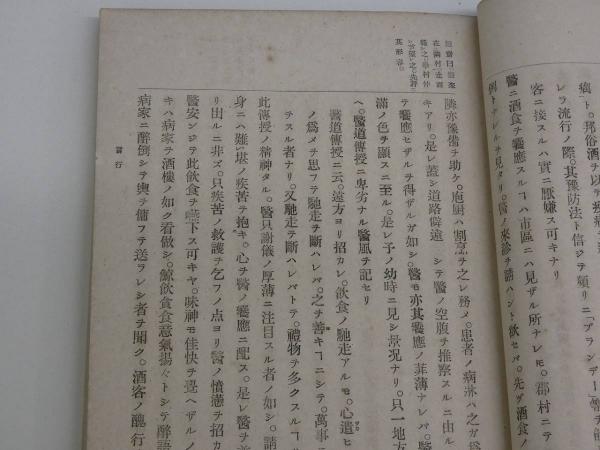 癘ト。邦俗酒ヲ以テ疫病
レラ流行ノ際。其豫防法ト信ジテ頻リニ「ブランデー」等ヲ
客ニ接スルハ實ニ厭嫌ス可キナリ。
醫ニ酒食ヲ饗應スルヿハ市區ニハ見ザル所ナレモ。郡村ニテ
例トナレルヲ見タリ。醫ノ來診ヲ請ハント欲セバ。先ヅ酒食ノ
隣亦豫備ヲ助ケ。庖厨ハ割烹ヲ之レ務メ。患者ノ病牀ハ之ガ爲
キアリ。是レ蓋シ道路僻遠 シテ醫ノ空腹ヲ推察スルニ由ル
テ饗應セザルヲ得ザルガ如シ。醫モ亦其饗應ノ菲薄ナレバ。
滿ノ色ヲ顯スニ至ル。是レ予ノ幼時ニ見シ景況ナリ。只一地方
ヘ。醫道傳授ニ卑劣ナル醫風ヲ記セリ
醫道傳授ニ云。遠方ヨリ招カレ。飮食ノ馳走アルモ。心遣ヒ
ノ爲メヲ思フテ馳走ヲ斷ハレバ。之ヲ善キヿニシテ。萬事
テスル者ナリ。又馳走ヲ斷ハレバトテ。禮物ヲ多クスルヿ
此傳授ノ精神タル。醫只謝儀ノ厚薄ニ注目スル者ノ如シ。請
身ニハ難堪ノ疾苦ヲ抱キ。心ヲ醫ノ饗應ニ配ス。是レ醫ヲ
リ出ルニ非ズ。只疾苦ノ救護ヲ乞フノ点ヨリ醫ノ憤懣ヲ招カ
醫安ンジテ此飮食ヲ嚥下ス可キヤ。味神モ佳快ヲ覺ヘザルノ
キハ病家ヲ酒樓ノ如ク看做シ。鯨飮食食意氣揚々トシテ醉語
病家ニ醉倒シテ輿ヲ傭フテ送ラレシ者ヲ聞ク。酒客ノ醜行
言行